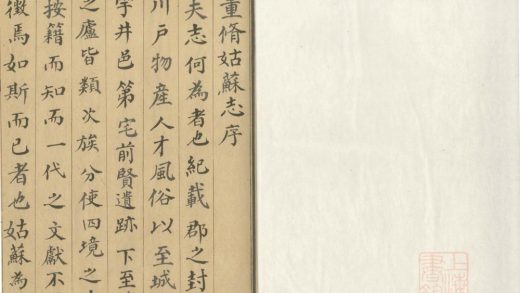 重脩姑蘇志序
夫志何為者也紀載郡之封
川戶物産人才風俗以至城
宇井邑第宅前賢遺跡下至
之廬皆類次族分使四境之
按籍而知而一代之文獻不
徴焉如斯而已者也姑蘇為
上海
書